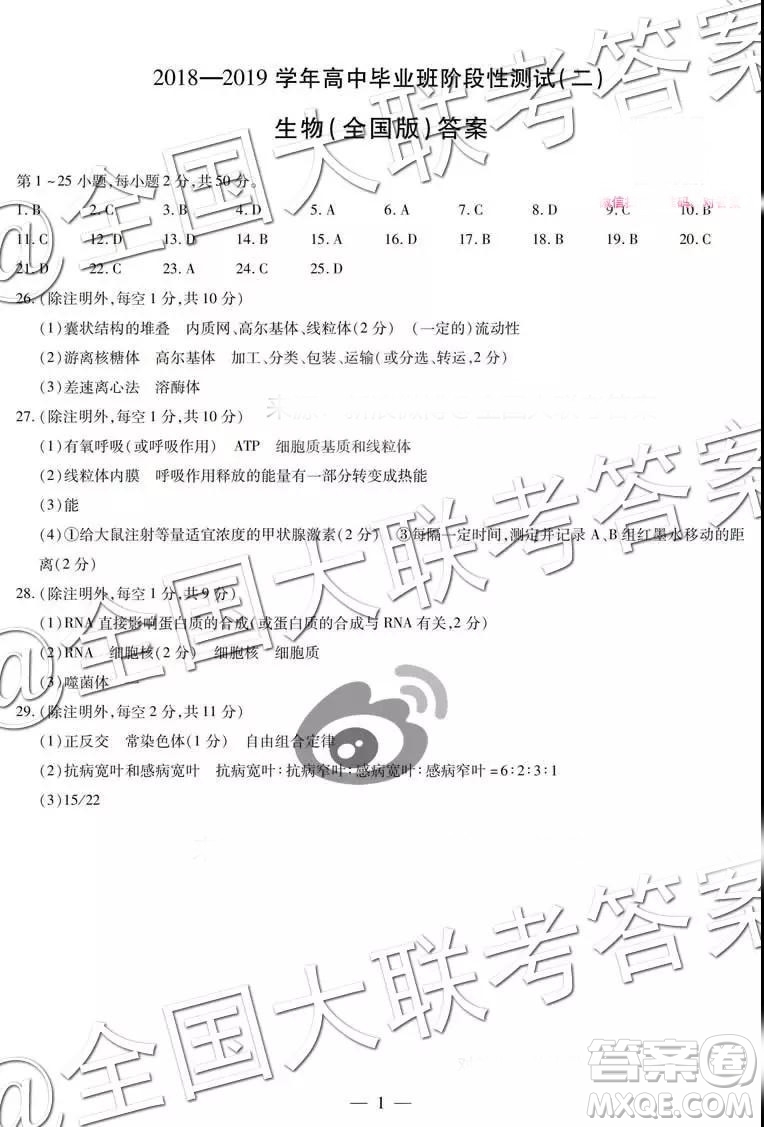 2018—2019 学年高中毕业班阶段性测试(二)
生物(全国版)答案
第 1 ~ 25 小题,每小题 2 分,共 50 分。
1. B 2. C 3. B 4. D 5. A 6. A 7. C 8. D 9. C 10. B
11. C 12. D 13. D 14. B 15. A 16. A 17. B 18. B 19. B 20. C
21. D 22. C 23. A 24. C 25. D
26. (除注明外,每空 1 分,共 10 分)
(1)囊状结构的堆叠 内质网、高尔基体、线粒体(2 分) (一定的)流动性
(2)游离核糖体 高尔基体 加工、分类、包装、运输(或分类、包装、转运,2 分)
(3)差速离心法 溶酶体
27. (除注明外,每空 1 分,共 10 分)
(1)有氧呼吸(或呼吸作用) ATP 细胞质基质和线粒体
(2)线粒体内膜 呼吸作用释放的能量有一部分转变成热能
(3)能
(4)①给大鼠注射等量适宜浓度的甲状腺激素(2 分) ③每隔一定时间,测定并记录 A、B 组红墨水移动的距
离(2 分)
28. (除注明外,每空 1 分,共 9 分)
(1)RNA 直接影响蛋白质的合成(或蛋白质的合成与 RNA 有关,2 分)
(2)RNA 细胞核(2 分) 细胞核 细胞质
(3)噬菌体
29. (除注明外,每空 2 分,共 11 分)
(1)正反交 常染色体(1 分) 自由组合定律
(2)抗病宽叶和感病宽叶 抗病宽叶∶抗病窄叶∶感病宽叶∶感病窄叶 = 6∶2∶3∶1
(3)15/22
@全国大联考答案
@全国大联考答案
@全国大联考答案
答案卷
MXQE.COM
— 1 —